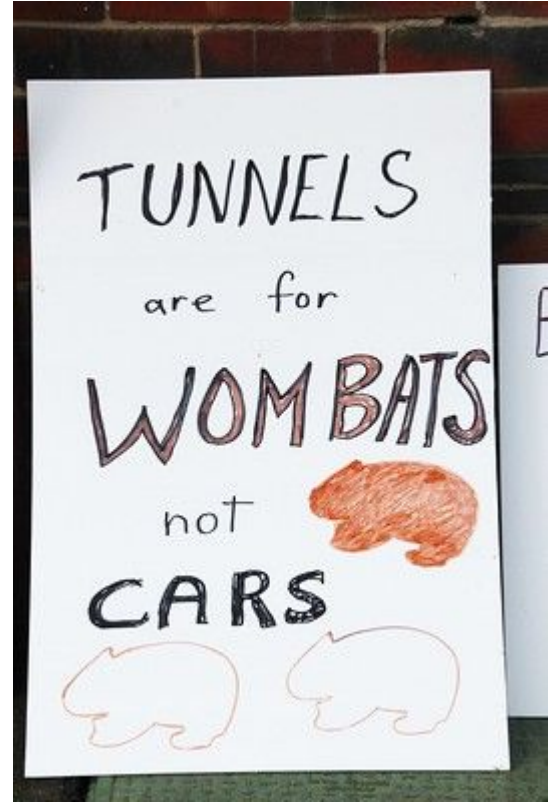 TUNNELS
are for
WOMBATS
not
CARS